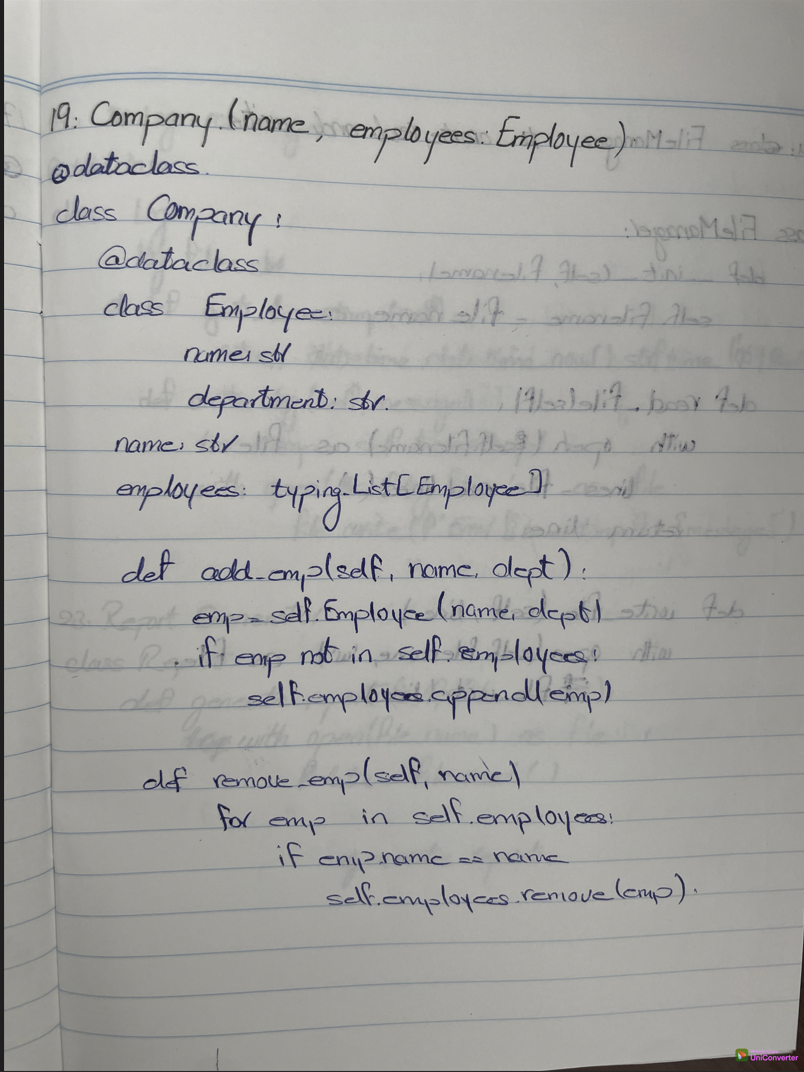 19. Company.(name, employees: Employee)
@dataclass.
class Company:
@dataclass
class Employee:
name: str
department: str.
name: str
employees: typing.List[Employee]
def add_emp(self, name, dept):
emp = self.Employee(name, dept)
if emp not in self.employees:
self.employees.append(emp)
def remove_emp(self, name)
for emp in self.employees:
if emp.name == name
self.employees.remove(emp).
UniConverter